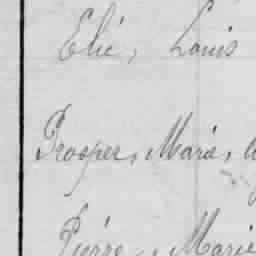 Elie, Louis
Prosper, Marie,
Pierre, Marie